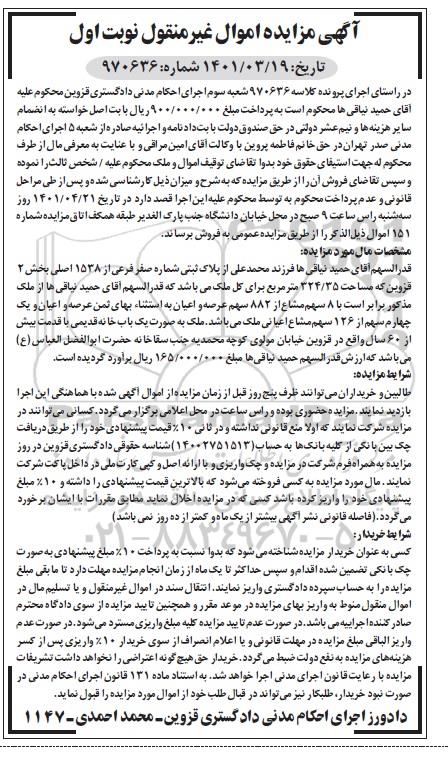 آگهی مزایده اموال غیرمنقول نوبت اول
تاریخ: ۱۴۰۱/۰۳/۱۹ شماره: ۹۷۰۶۳۶
در راستای اجرای پرونده کلاسه ۹۷۰۶۳۶ شعبه سوم اجرای احکام مدنی دادگستری قزوین محکوم علیه
آقای حمید نیاقی ها محکوم است به پرداخت مبلغ ۹۰۰/۰۰۰/۰۰۰ ریال بابت اصل خواسته به انضمام
سایر هزینه‌ها و نیم عشر دولتی در حق صندوق دولت بابت دادنامه و اجرائیه صادره از شعبه ۵ اجرای احکام
مدنی صدر تهران در حق خانم فاطمه پروین با وکالت آقای امین مراقی و با عنایت به معرفی مال از طرف
محکوم له جهت استیفای حقوق خود بدوا تقاضای توقیف اموال و ملک محکوم علیه / شخص ثالث را نموده
و سپس تقاضای فروش آن را از طریق مزایده که به شرح و میزان ذیل کارشناسی شده و پس از طی مراحل
قانونی و عدم پرداخت محکوم به توسط محکوم علیه این اجرا قصد دارد در تاریخ ۱۴۰۱/۰۴/۲۱ روز
سه‌شنبه راس ساعت ۹ صبح در محل خیابان دانشگاه جنب پارک الغدیر طبقه همکف اتاق مزایده شماره
۱۵۱ اموال ذیل‌الذکر را از طریق مزایده عمومی به فروش برساند.
مشخصات مال مورد مزایده:
قدرالسهم آقای حمید نیاقی ها فرزند محمدعلی از پلاک ثبتی شماره صفر فرعی از ۱۵۳۸ اصلی بخش ۲
قزوین که مساحت ۳۲۴/۳۵ مترمربع برای کل ملک می باشد که قدرالسهم آقای حمید نیاقی ها از ملک
مذکور برابر است با ۸ سهم مشاع از ۸۸۲ سهم عرصه و اعیان به استثناء بهای ثمن عرصه و اعیان و یک
چهارم سهم از ۱۲۶ سهم مشاع اعیانی ملک می باشد. ملک به صورت یک باب خانه قدیمی با قدمت بیش
از ۶۰ سال واقع در قزوین خیابان مولوی کوچه محمدیه جنب سقاخانه حضرت ابوالفضل العباس (ع)
می باشد که ارزش قدرالسهم حمید نیاقی‌ها مبلغ ۱۶۵/۰۰۰/۰۰۰ ریال برآورد گردیده است.
شرایط مزایده:
طالبین و خریداران می‌توانند ظرف پنج روز قبل از زمان مزایده از اموال آگهی شده با هماهنگی این اجرا
بازدید نمایند. مزایده حضوری بوده و راس ساعت در محل اعلامی برگزار می گردد. کسانی می‌توانند در
مزایده شرکت نمایند که اولا منع قانونی نداشته و در ثانی ۱۰٪ قیمت پیشنهادی خود را از طریق دریافت
چک بین بانکی از کلیه بانک‌ها به حساب (۱۴۰۰۲۷۵۱۵۱۳) شناسه حقوقی دادگستری قزوین در روز
مزایده به همراه فرم شرکت در مزایده و چک واریزی و با ارائه اصل و کپی کارت ملی در داخل پاکت شرکت
نمایند. مال مورد مزایده به کسی فروخته می‌شود که بالاترین قیمت پیشنهادی را داشته و ۱۰٪ مبلغ
پیشنهادی خود را واریز کرده باشد کسی که در مزایده اخلال نماید مطابق مقررات با ایشان برخورد
می گردد. (فاصله قانونی نشر آگهی بیشتر از یک ماه و کمتر از ده روز نمی باشد)
شرایط خریدار:
کسی به عنوان خریدار مزایده شناخته می شود که بدوا نسبت به پرداخت ۱۰٪ مبلغ پیشنهادی به صورت
چک بانکی تضمین شده اقدام و سپس حداکثر تا یک ماه از زمان انجام مزایده مهلت دارد تا مابقی مبلغ
مزایده را به حساب سپرده دادگستری واریز نمایند. انتقال سند در اموال غیرمنقول و یا تسلیم مال در
اموال منقول منوط به واریز بهای مزایده در موعد مقرر و همچنین تایید مزایده از سوی دادگاه محترم
صادرکننده اجراییه می باشد. در صورت عدم تایید مزایده کلیه مبلغ واریزی مسترد می شود. در صورت عدم
واریز الباقی مبلغ مزایده در مهلت قانونی و یا اعلام انصراف از سوی خریدار ۱۰٪ واریزی پس از کسر
هزینه‌های مزایده به نفع دولت ضبط می گردد. خریدار حق هیچ گونه اعتراضی را نخواهد داشت تشریفات
مزایده با رعایت قانون اجرای مدنی اجرا خواهد شد. به استناد ماده ۱۳۱ قانون اجرای احکام مدنی در
صورت نبود خریدار، طلبکار نیز می‌تواند در قبال طلب خود از اموال مورد مزایده را قبول نماید.
دادورز اجرای احکام مدنی دادگستری قزوین ـ محمد احمدی ـ ۱۱۴۷
۰۲۱-۸۸۳۴۹۶۷۰-۵